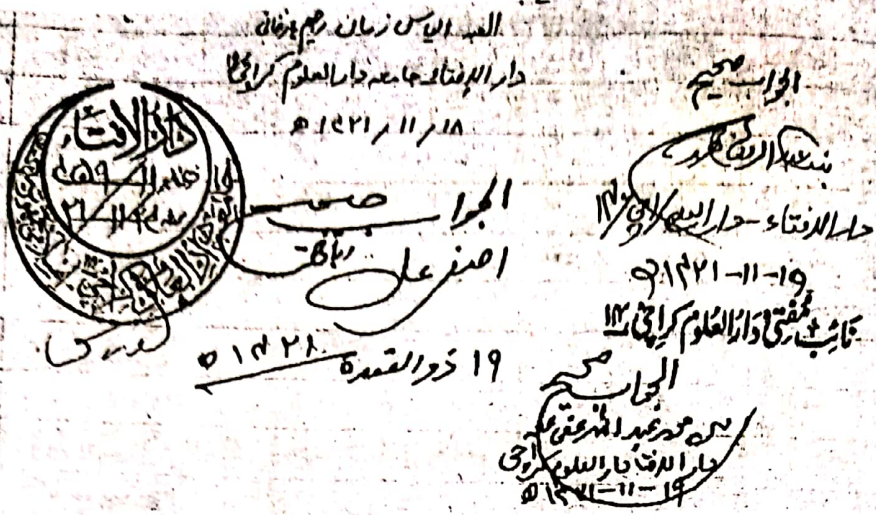 العبد الیاس زمان
دار الافتاء جامعہ دارالعلوم کراچی ۱۴
۱۸ / ۱۱ / ۱۴۲۱ ھ
الجواب صحیح
بندہ عبدالرؤف
دارالافتاء - دارالعلوم کراچی ۱۴
۱۹-۱۱-۱۴۲۱ھ
نائب مفتی دارالعلوم کراچی ۱۴
دار الافتاء
الجواب صحیح
اصغر علی ربانی
۱۹ ذوالقعدہ ۱۴۲۱ ھ
الجواب صحیح
محمد عبدالمنان عفی عنہ
دارالافتاء دارالعلوم کراچی
۱۹-۱۱-۱۴۲۱ھ